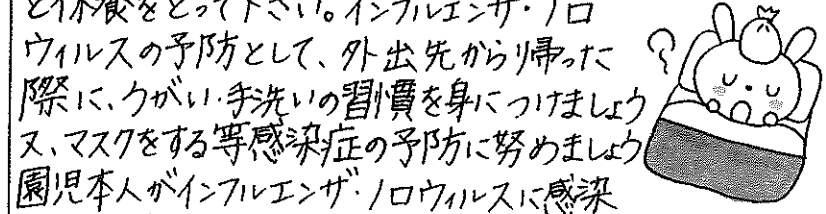 と休養をとって下さい。インフルエンザ・ノロ
ウィルスの予防として、外出先から帰った
際に、うがい・手洗いの習慣を身につけましょう
又、マスクをする等感染症の予防に努めましょう
園児本人がインフルエンザ・ノロウィルスに感染